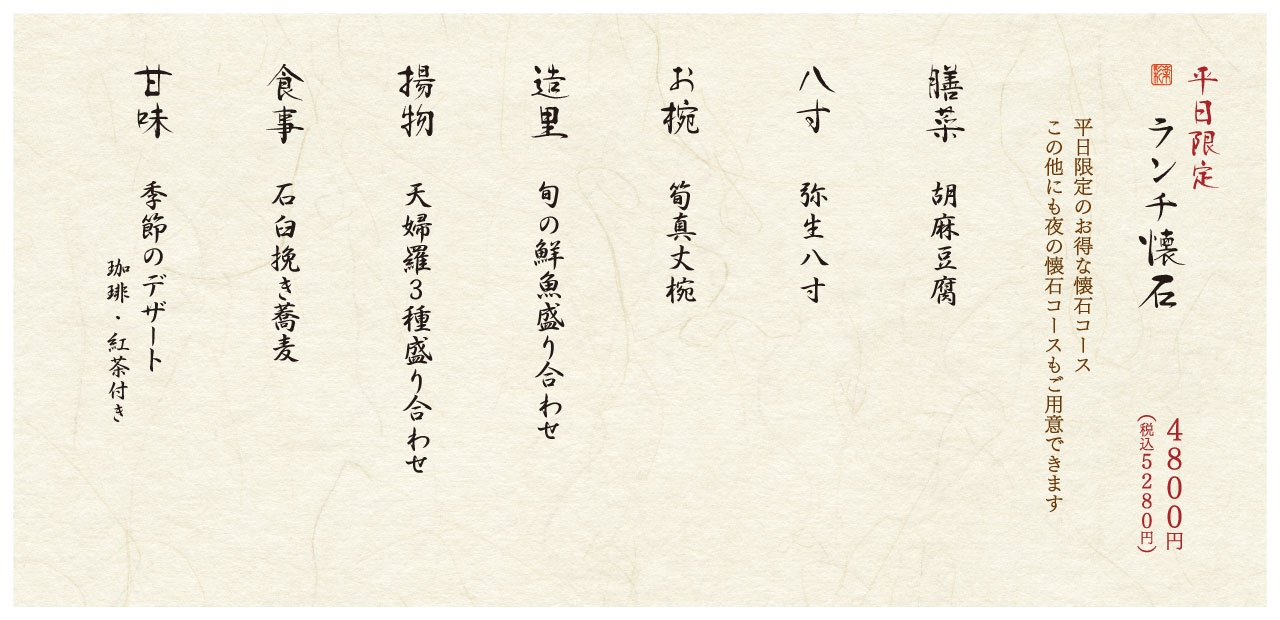 平日限定
ランチ懐石
4800円
(税込5280円)
平日限定のお得な懐石コース
この他にも夜の懐石コースもご用意できます
膳菜
胡麻豆腐
八寸
弥生八寸
お椀
筍真丈椀
造里
旬の鮮魚盛り合わせ
揚物
天婦羅3種盛り合わせ
食事
石臼挽き蕎麦
甘味
季節のデザート
珈琲・紅茶付き